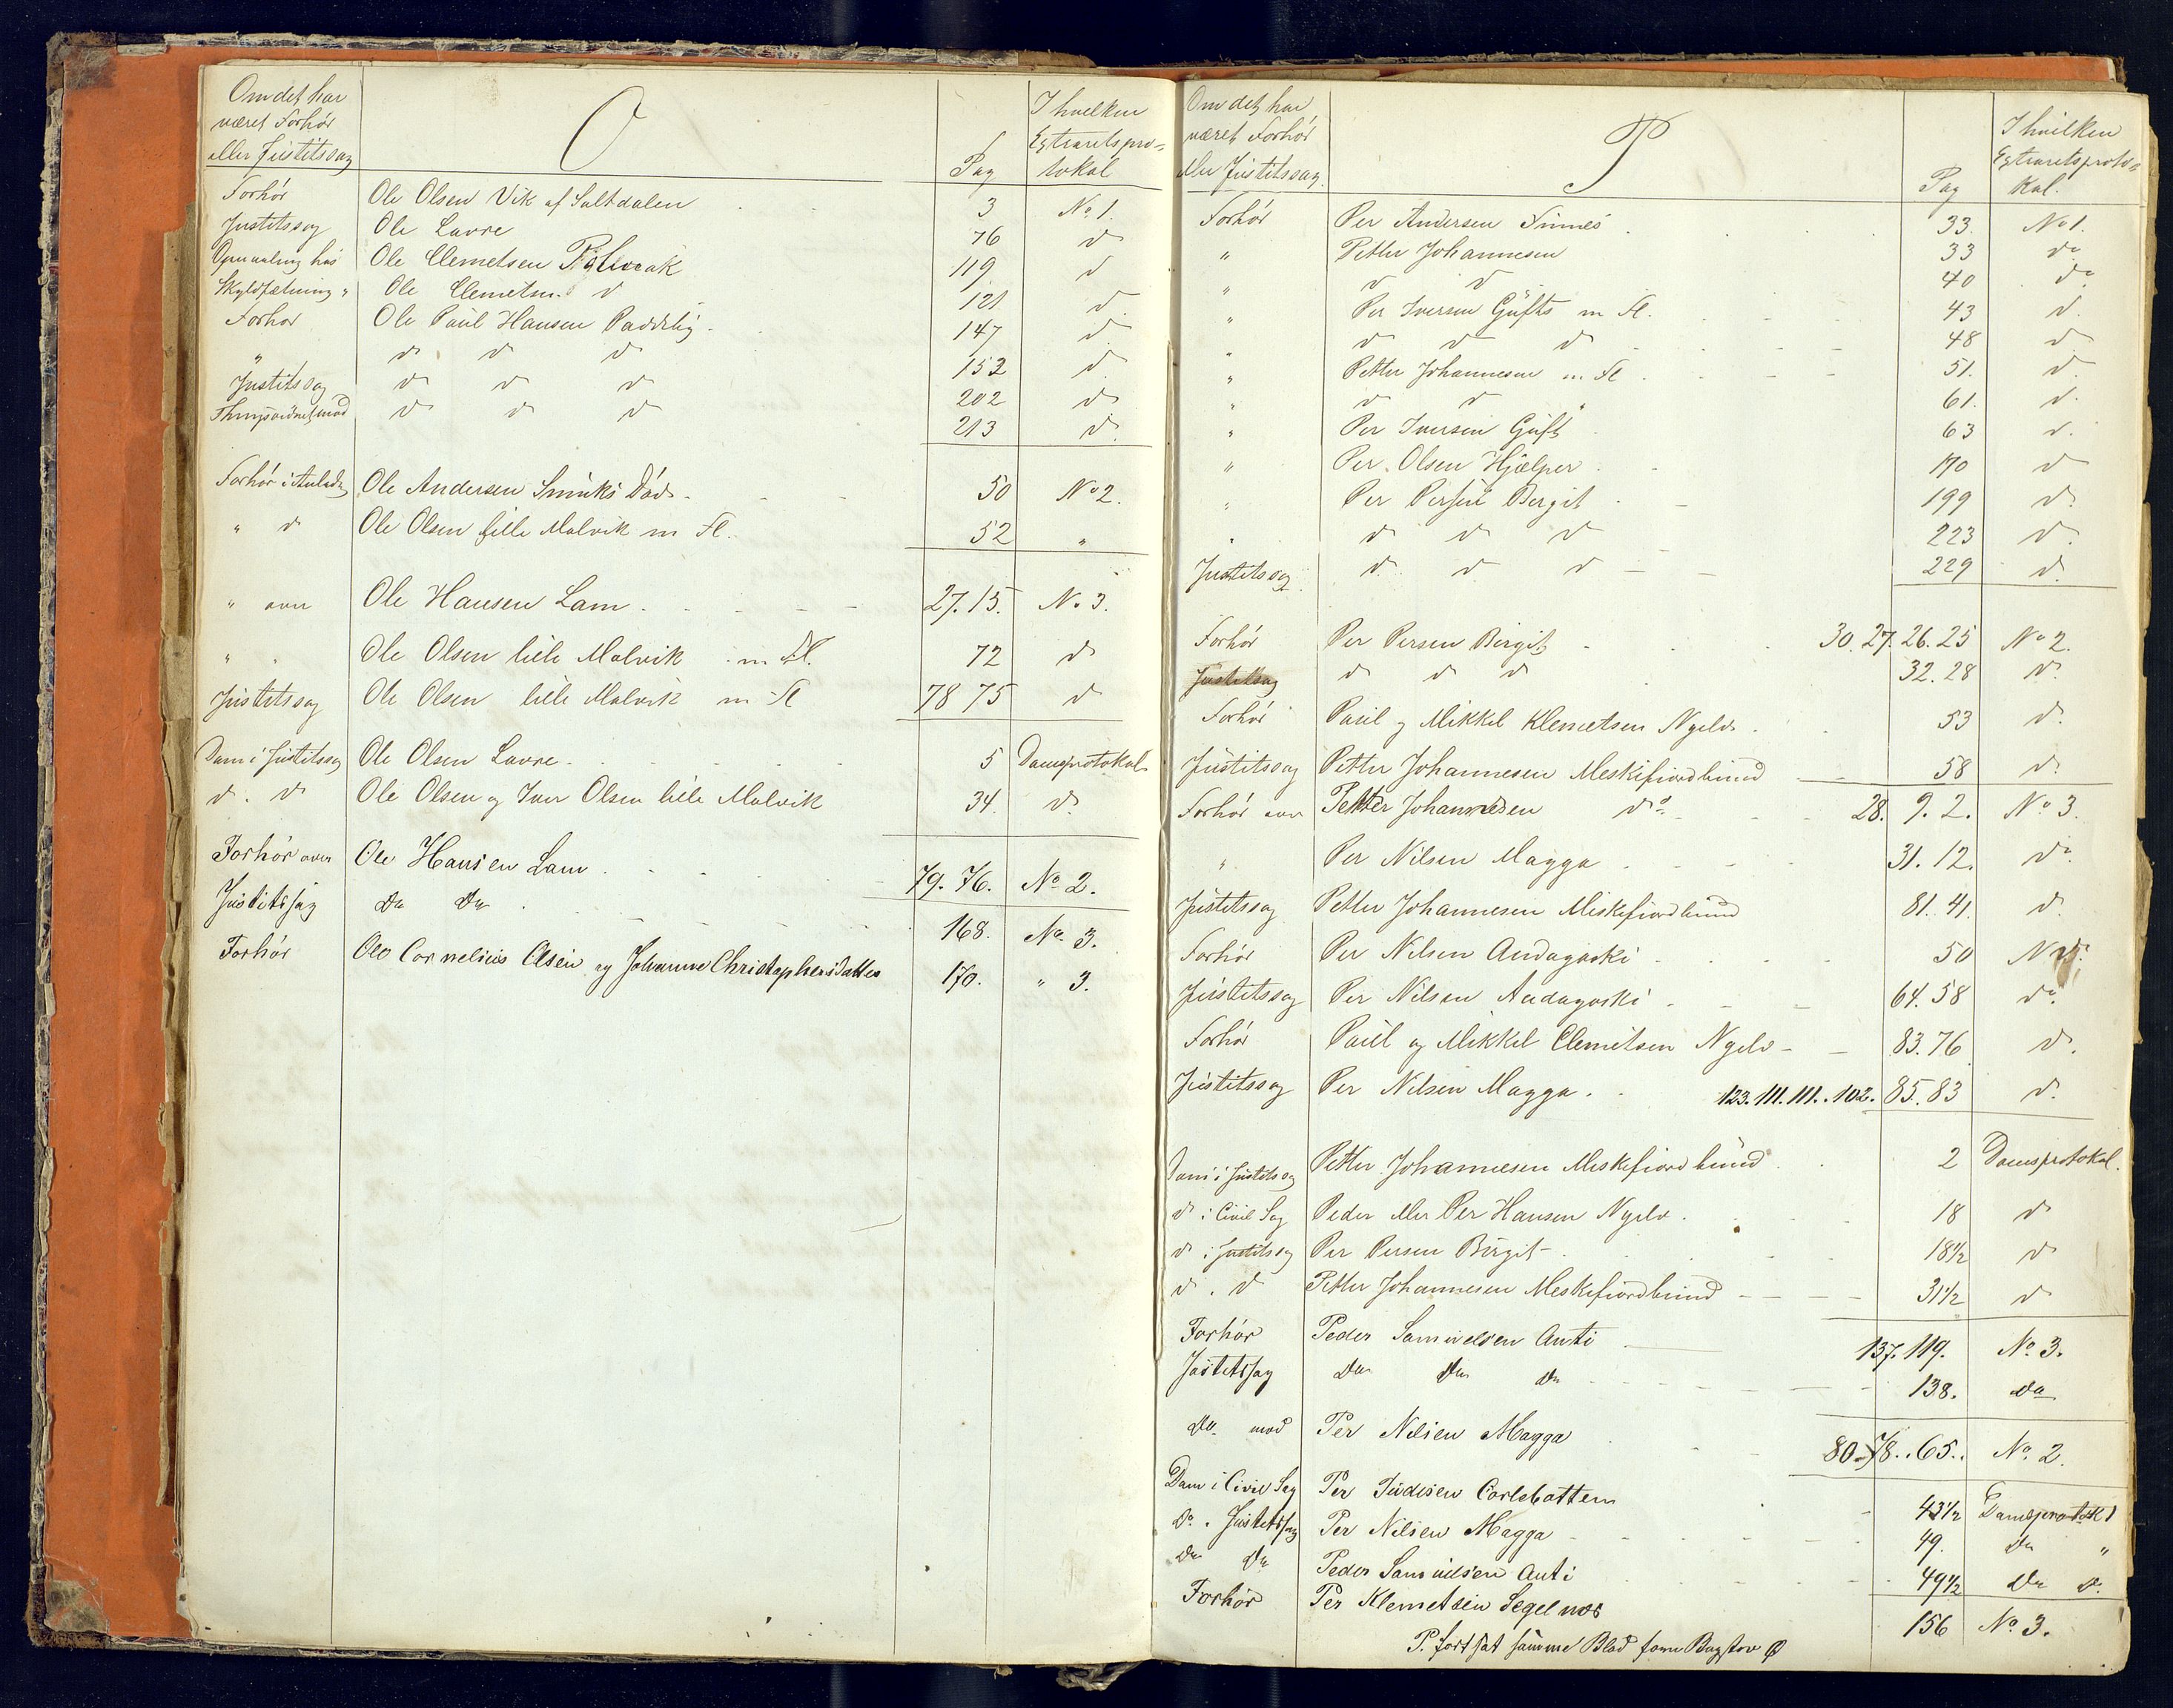 Om det har
været Forhör
eller Justitssag
O
Pag
I hvilken
Extraretspro=
tokol
Forhör Ole Olsen Vik af Saltdalen 3 No 1.
Justitssag Ole Lavre 76 do
Ole Clemetsen 119 do
Skyldsætning " Ole Clemetsen do 121 do
Forhør Ole Paul Hansen 147 do
" do do do 152 do
Justitssag do do do 202 do
Thingsvidne mod do do do 213 do
Forhör i Anledn Ole Andersen Smuks Död 50 No 2.
" do Ole Olsen lille Molvik m Fl. 52 "
" over Ole Hansen Lam 27. 15. No 3.
" " Ole Olsen lille Molvik m Fl. 72 do
Justitssag Ole Olsen lille Molvik m Fl 78 75 do
Dom i Justitssag Ole Olsen Lavre 5 Domsprotokol
do. do Ole Olsen og Iver Olsen lille Molvik 34. do
Forhör over Ole Hansen Lam 79. 76. No 2.
Justitssag Do Do 168. No 3.
Forhör Ole Cornelius Olsen og Johanne Christophersdatter 170. " 3.
Om det har
været Forhör
eller Justitssag.
P
Pag
I hvilken
Extraretsproto=
kol.
Forhör Per Andersen Finnes 33. No 1.
" Petter Johannesen 33 do
" do do 40 do
" Per Iversen Gufts m Fl. 43 do
" do do do 48 do
" Petter Johannesen m Fl 51. do
" do do " 61. do
" Per Iversen Guft 63 do
" Per Olsen Hjelper 170 do
" Per Persen Bergit 199 do
" do do do 223 do
Justitssag do do do 229 do
Forhör Per Persen Birgit 30. 27. 26. 25 No 2.
Justitssag do do do 32. 28 do
Forhör Paul og Mikkel Klemetsen Ngelv 53 do
Justitssag Petter Johannesen Meskefiordbund 58 do
Forhör over Petter Johannesen do 28. 9. 2. No 3.
" Per Nilsen Magga 31. 12. do
Justitssag Petter Johannesen Miskefiordbund 81. 41. do
Forhör Per Nilsen Andagoski 50
Justitssag Per Nilsen Andagoski 64. 58 do
Forhör Paul og Mikkel Clemetsen Ngelv 83. 76 do
Justitssag Per Nilsen Magga. 123. 111. 111. 102. 85. 83 do
Dom i Justitssag Petter Johannesen Miskefiordbund 2 Domsprotokol.
do i Civil Sag Peder eller Per Hansen Ngelv 18 do
do i Justitssag Per Persen Birgit 18½ do
do. do Petter Johannesen Meskefiordbund 31½ do
Forhör Peder Samuelsen Anti 137. 119. No 3.
Justitssag Do Do Do 138. Do
Do mod Per Nilsen Magga 80. 78. 65. No 2.
Dom i Civil Sag Per Judisen Carlebotten 43½ Domsprotok
Do. Justitssag Per Nilsen Magga 49. Do "
Do Do Peder Samuelsen Anti 49½ Do Do
Forhör Per Klemetsen Segelnæs 156 No 3.
P. fortsat samme Blad som Bogstav Ø